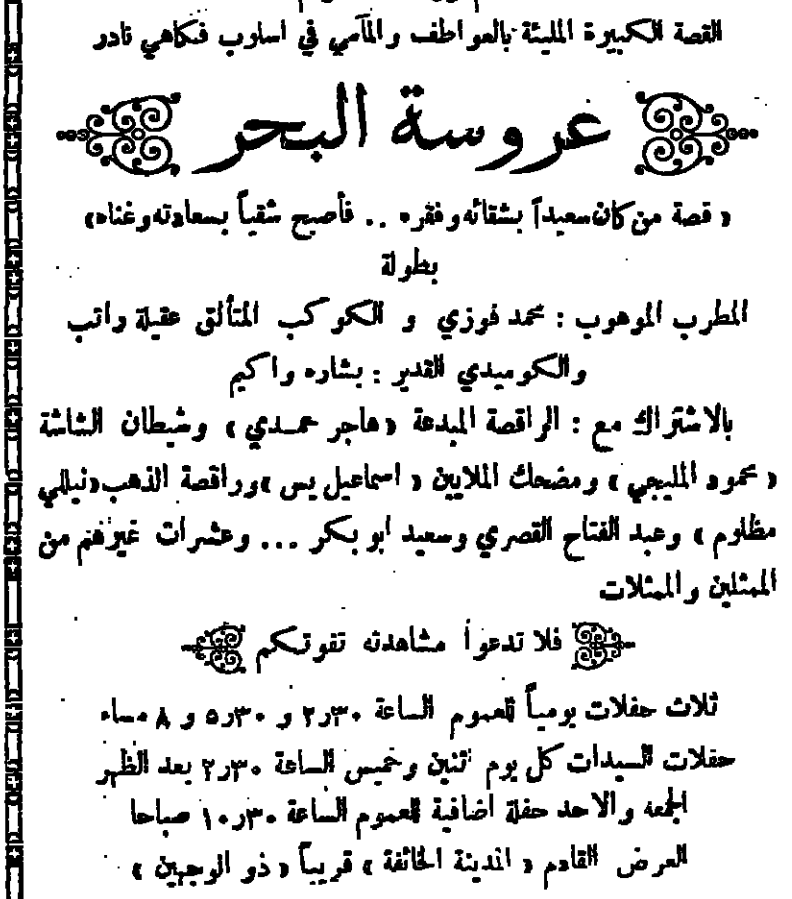 القصة الكبيرة المليئة بالعواطف والمآسي في اسلوب فكاهي نادر
عروسة البحر
« قصة من كان سعيداً بشقائه وفقره .. فأصبح شقياً بسعادته وغناه »
بطولة
المطرب الموهوب : محمد فوزي و الكوكب المتألق عقيلة راتب
والكوميدي القدير : بشاره واكيم
بالاشتراك مع : الراقصة المبدعة « هاجر حمدي » وشيطان الشاشة
« محمود المليجي » ومضحك الملايين « اسماعيل يس » وراقصة الذهب « نيللي
مظلوم » وعبد الفتاح القصري وسعيد ابو بكر ... وعشرات غيرهم من
الممثلين والممثلات
فلا تدعوا مشاهدته تفوتكم
ثلاث حفلات يومياً للعموم الساعة ٢٫٣٠ و ٥٫٣٠ و ٨ مساء
حفلات للسيدات كل يوم اثنين وخميس الساعة ٢٫٣٠ بعد الظهر
الجمعه والاحد حفلة اضافية للعموم الساعة ١٠٫٣٠ صباحا
العرض القادم « المدينة الخائفة » قريباً « ذو الوجهين »